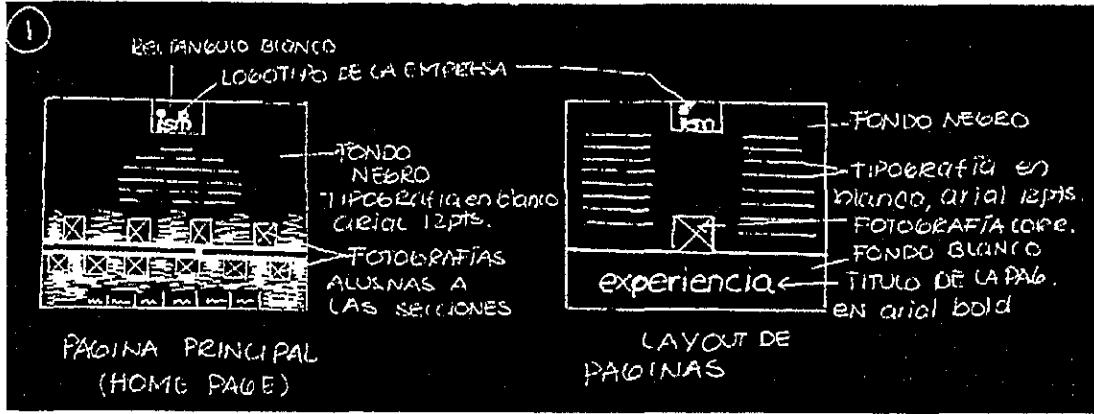 1
RECTANGULO BLANCO
LOGOTIPO DE LA EMPRESA
ism
FONDO
NEGRO
TIPOGRAFIA en blanco
arial 12pts.
FOTOGRAFIAS
ALUSIVAS A
LAS SECCIONES
PAGINA PRINCIPAL
(HOME PAGE)
ism
FONDO NEGRO
TIPOGRAFÍA en
blanco, arial 12pts.
FOTOGRAFÍA CORR.
FONDO BLANCO
experiencia
TITULO DE LA PAG.
en arial bold
LAYOUT DE
PAGINAS